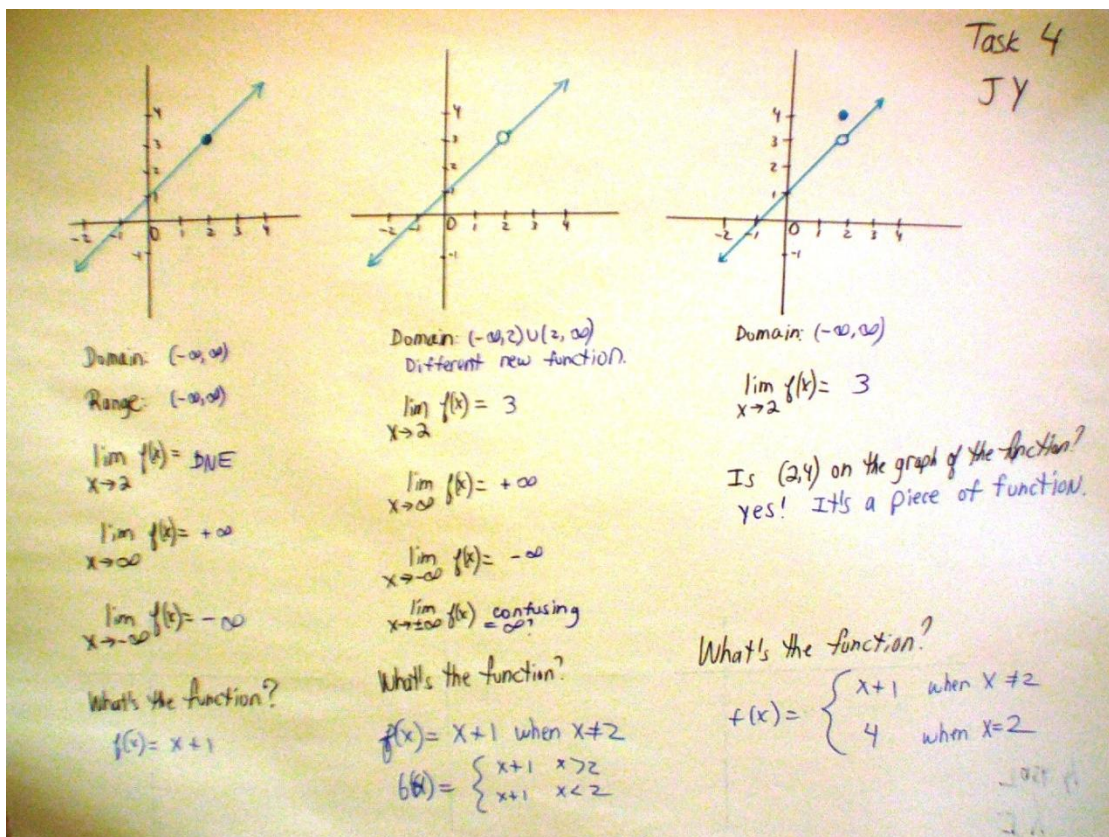 Task 4
JY
4
3
2
1
-2 -1 0 1 2 3 4
-1
Domain: (-∞,∞)
Range: (-∞,∞)
lim f(x) = DNE
x→2
lim f(x) = +∞
x→∞
lim f(x) = -∞
x→-∞
What's the function?
f(x) = x+1
4
3
2
1
-2 -1 0 1 2 3 4
-1
Domain: (-∞,2)∪(2,∞)
Different new function.
lim f(x) = 3
x→2
lim f(x) = +∞
x→∞
lim f(x) = -∞
x→-∞
lim f(x) = confusing
x→±∞ ∞?
What's the function?
f(x) = x+1 when x≠2
6(x) = { x+1 x>2
x+1 x<2
4
3
2
1
-2 -1 0 1 2 3 4
-1
Domain: (-∞,∞)
lim f(x) = 3
x→2
Is (2,4) on the graph of the function?
yes! It's a piece of function.
What's the function?
f(x) = { x+1 when x≠2
4 when x=2